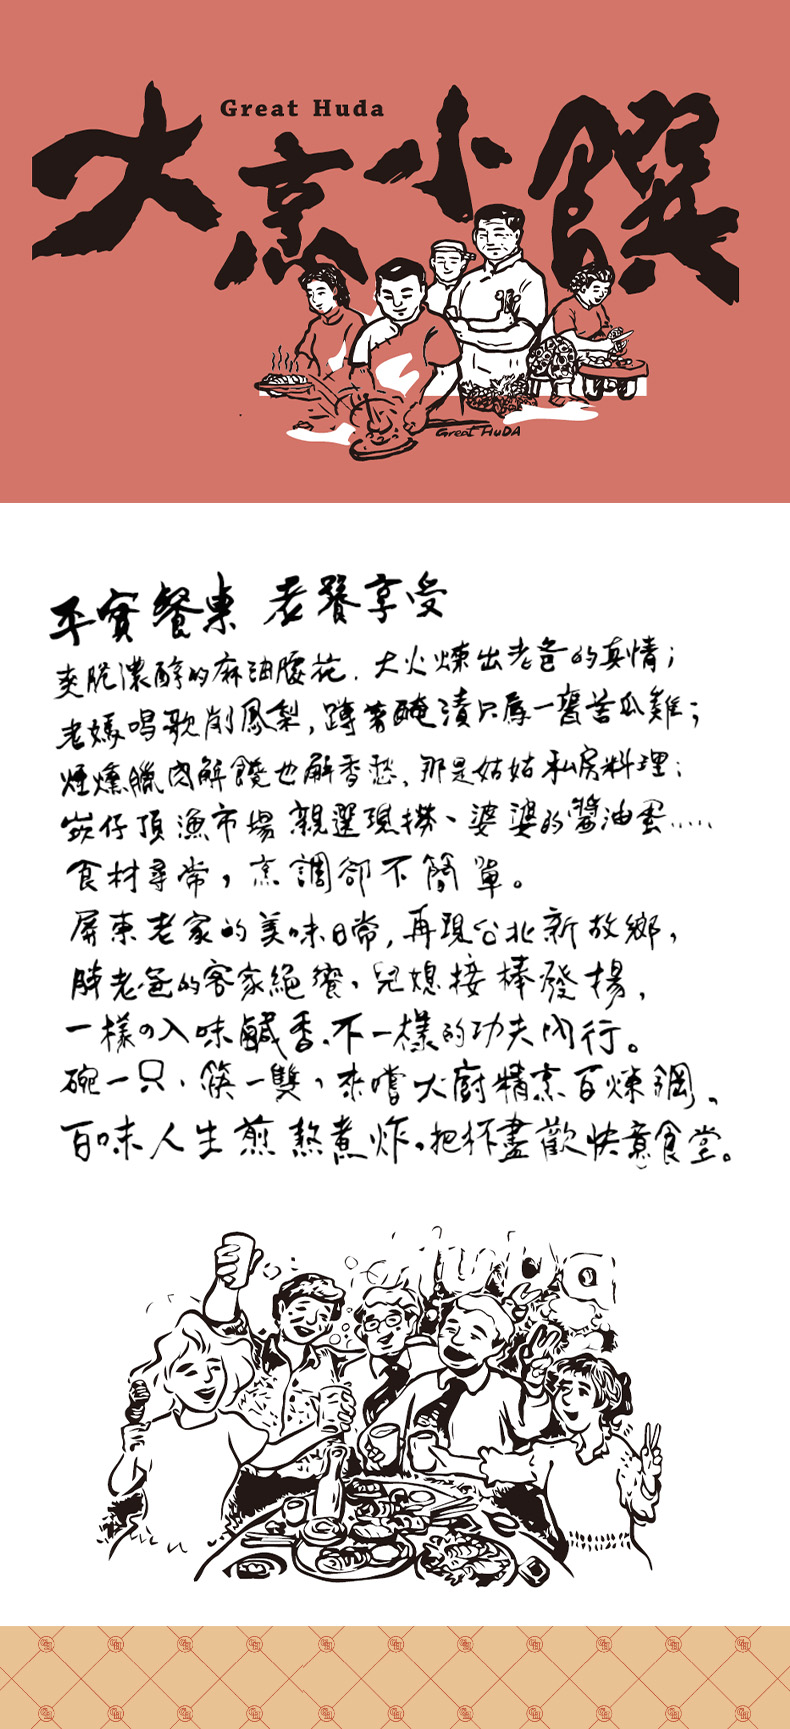 Great Huda
大烹小饌
Great HuDA
平實餐東 老饕享受
爽脆濃醇的麻油腰花，大火煉出老爸的真情；
老媽唱歌削鳳梨，蹲著醃漬只為一甕苦瓜雞；
煙燻臘肉解饞也解香愁，那是姑姑私房料理；
崁仔頂漁市場親選現撈、婆婆的醬油蛋……
食材尋常，烹調卻不簡單。
屏東老家的美味日常，再現台北新故鄉，
胖老爸的客家絕饗，兒媳接棒發揚，
一樣の入味鹹香，不一樣的功夫內行。
碗一只，筷一雙，來嚐大廚精烹百煉鋼、
百味人生煎熬煮炸，把杯盡歡快意食堂。